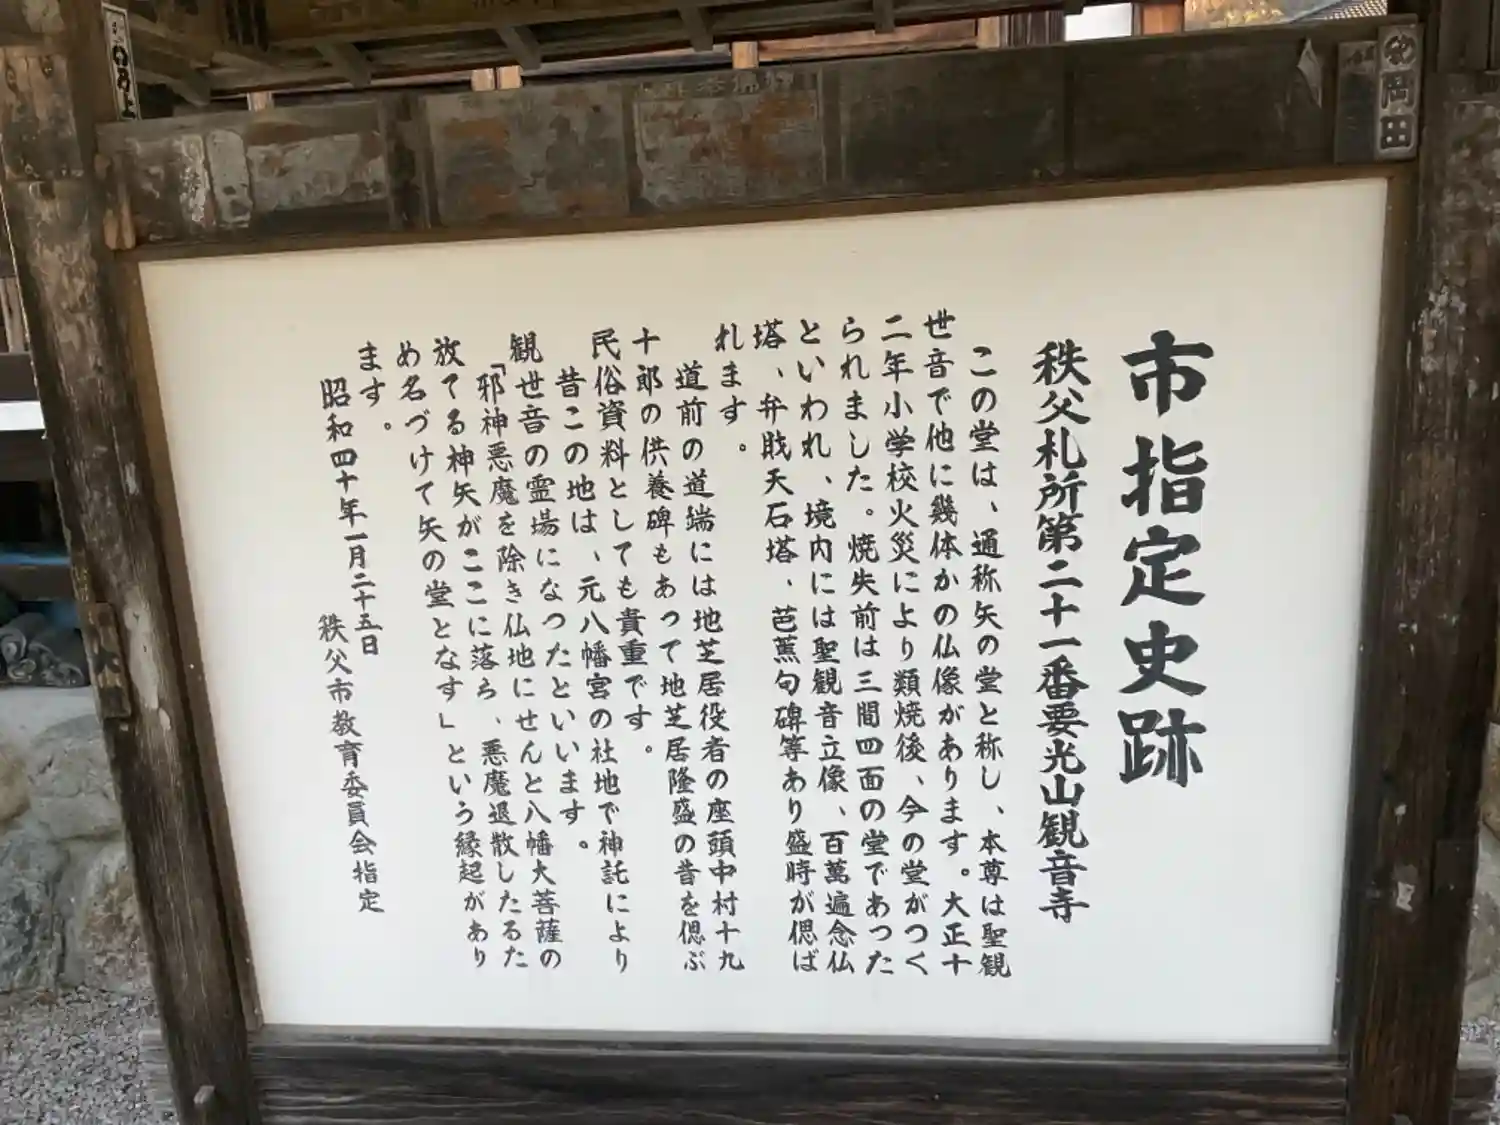 市指定史跡
秩父札所第二十一番要光山観音寺
この堂は、通称矢の堂と称し、本尊は聖観
世音で他に幾体かの仏像があります。大正十
二年小学校火災により類焼後、今の堂がつく
られました。焼失前は三間四面の堂であった
といわれ、境内には聖観音立像、百萬遍念仏
塔、弁財天石塔、芭蕉句碑等あり盛時が偲ば
れます。
道前の道端には地芝居役者の座頭中村十九
十郎の供養碑もあって地芝居隆盛の昔を偲ぶ
民俗資料としても貴重です。
昔この地は、元八幡宮の社地で神託により
観世音の霊場になったといいます。
「邪神悪魔を除き仏地にせんと八幡大菩薩の
放てる神矢がここに落ち、悪魔退散したるた
め名づけて矢の堂となす」という縁起があり
ます。
昭和四十年一月二十五日
秩父市教育委員会指定
岡田